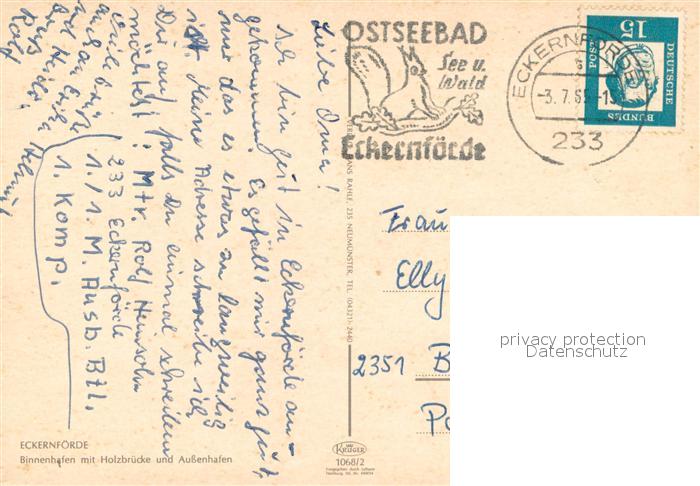 OSTSEEBAD
See u.
Wald
Eckernförde
ECKERNFÖRDE
-3.7.6
233
15
DEUTSCHE
BUNDES
POST
Liebe Oma!
Ich bin gut in Eckernförde an-
gekommen. Es gefällt mir ganz gut,
nur das es etwas zu langweilig
ist. Meine Adresse schreibe ich
Dir auf falls Du einmal schreiben
möchtest! Mtr. Rolf
233 Eckernförde
1./1. M. Ausb. Btl.
1. Komp.
Viele
auch an
Rolf
Frau
Elly
2351 B
Po
HANS RAHLF, 235 NEUMÜNSTER, TEL. (04321) 2440
ECKERNFÖRDE
Binnenhafen mit Holzbrücke und Außenhafen
KRÜGER
1068/2
privacy protection
Datenschutz